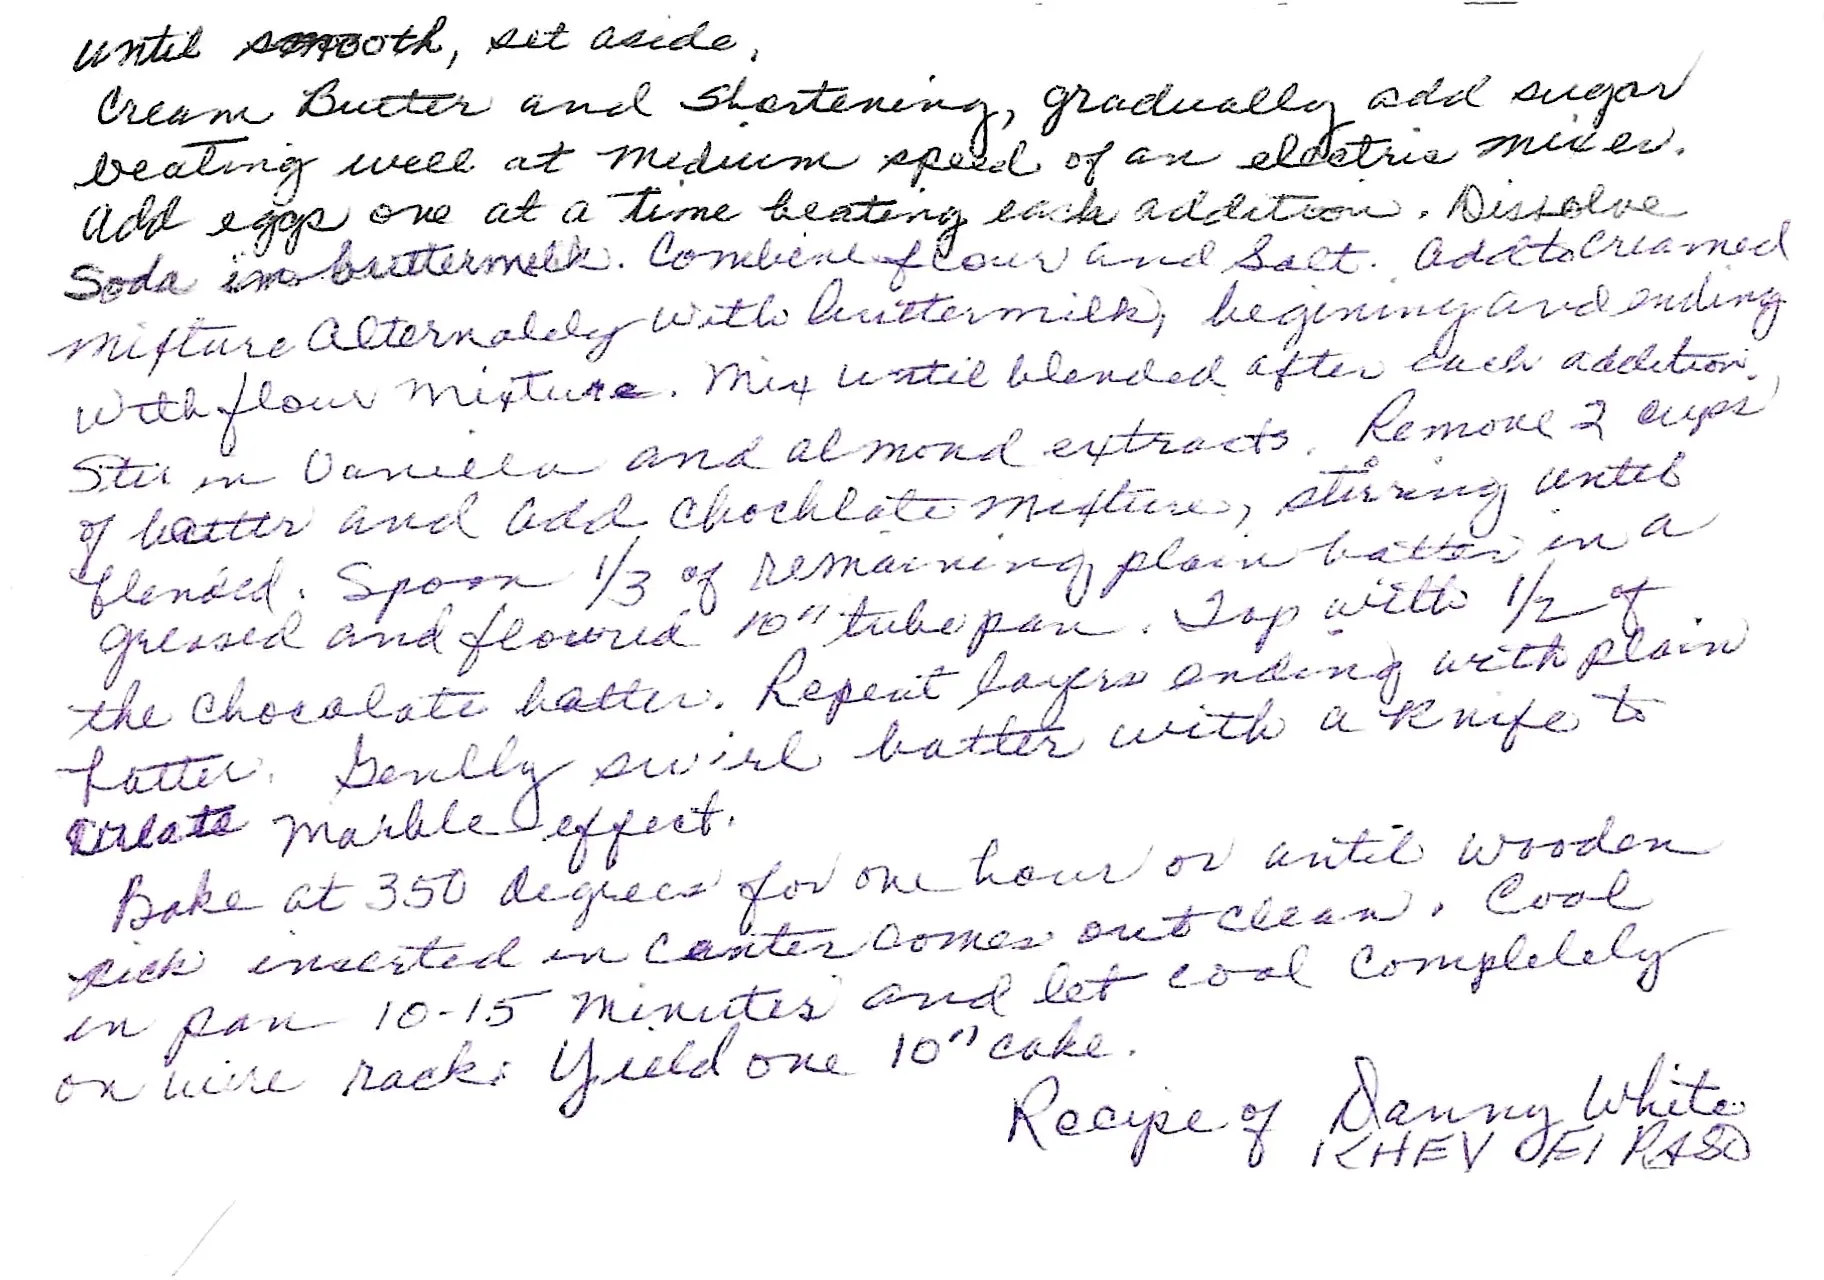 until smooth, set aside.
Cream Butter and Shortening, gradually add sugar
beating well at medium speed of an electric mixer.
Add eggs one at a time beating each addition. Dissolve
Soda in buttermilk. Combine flour and Salt. Add to Creamed
mixture Alternately with buttermilk, begining and ending
with flour mixture. Mix until blended after each addition.
Stir in Vanilla and almond extracts. Remove 2 cups
of batter and add Chochlate mixture, stirring until
blended. Spoon 1/3 of remaining plain batter in a
greased and floured 10" tube pan. Top with 1/2 of
the Chocolate batter. Repeat layers ending with plain
batter. Gently swirl batter with a knife to
Create marble effect.
Bake at 350 degrees for one hour or until wooden
pick inserted in center comes out clean. Cool
in pan 10-15 minutes and let cool completely
on wire rack. Yield one 10" cake.
Recipe of Danny White
KHEV El PASO